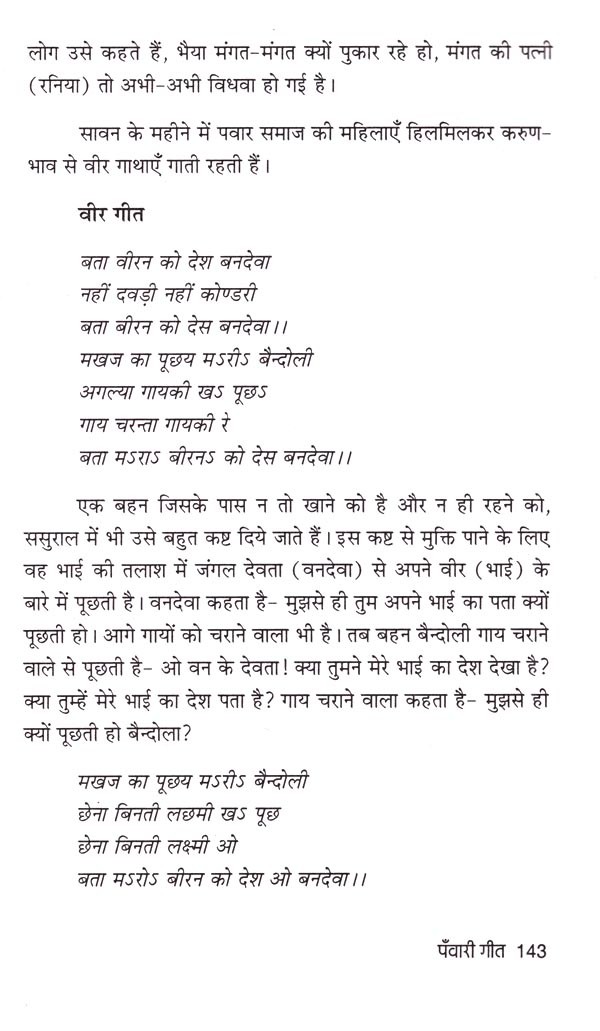 लोग उसे कहते हैं, भैया मंगत-मंगत क्यों पुकार रहे हो, मंगत की पत्नी
(रनिया) तो अभी-अभी विधवा हो गई है।
सावन के महीने में पवार समाज की महिलाएँ हिलमिलकर करुण-
भाव से वीर गाथाएँ गाती रहती हैं।
वीर गीत
बता वीरन को देश बनदेवा
नहीं दवड़ी नहीं कोण्डरी
बता बीरन को देस बनदेवा।।
मखज का पूछय मऽरीऽ बैन्दोली
अगल्या गायकी खऽ पूछऽ
गाय चरन्ता गायकी रे
बता मऽराऽ बीरनऽ को देस बनदेवा।।
एक बहन जिसके पास न तो खाने को है और न ही रहने को,
ससुराल में भी उसे बहुत कष्ट दिये जाते हैं। इस कष्ट से मुक्ति पाने के लिए
वह भाई की तलाश में जंगल देवता (वनदेवा) से अपने वीर (भाई) के
बारे में पूछती है। वनदेवा कहता है- मुझसे ही तुम अपने भाई का पता क्यों
पूछती हो। आगे गायों को चराने वाला भी है। तब बहन बैन्दोली गाय चराने
वाले से पूछती है- ओ वन के देवता! क्या तुमने मेरे भाई का देश देखा है?
क्या तुम्हें मेरे भाई का देश पता है? गाय चराने वाला कहता है- मुझसे ही
क्यों पूछती हो बैन्दोला?
मखज का पूछय मऽरीऽ बैन्दोली
छेना बिनती लछमी खऽ पूछ
छेना बिनती लक्ष्मी ओ
बता मऽरोऽ बीरन को देश ओ बनदेवा।।
पँवारी गीत 143